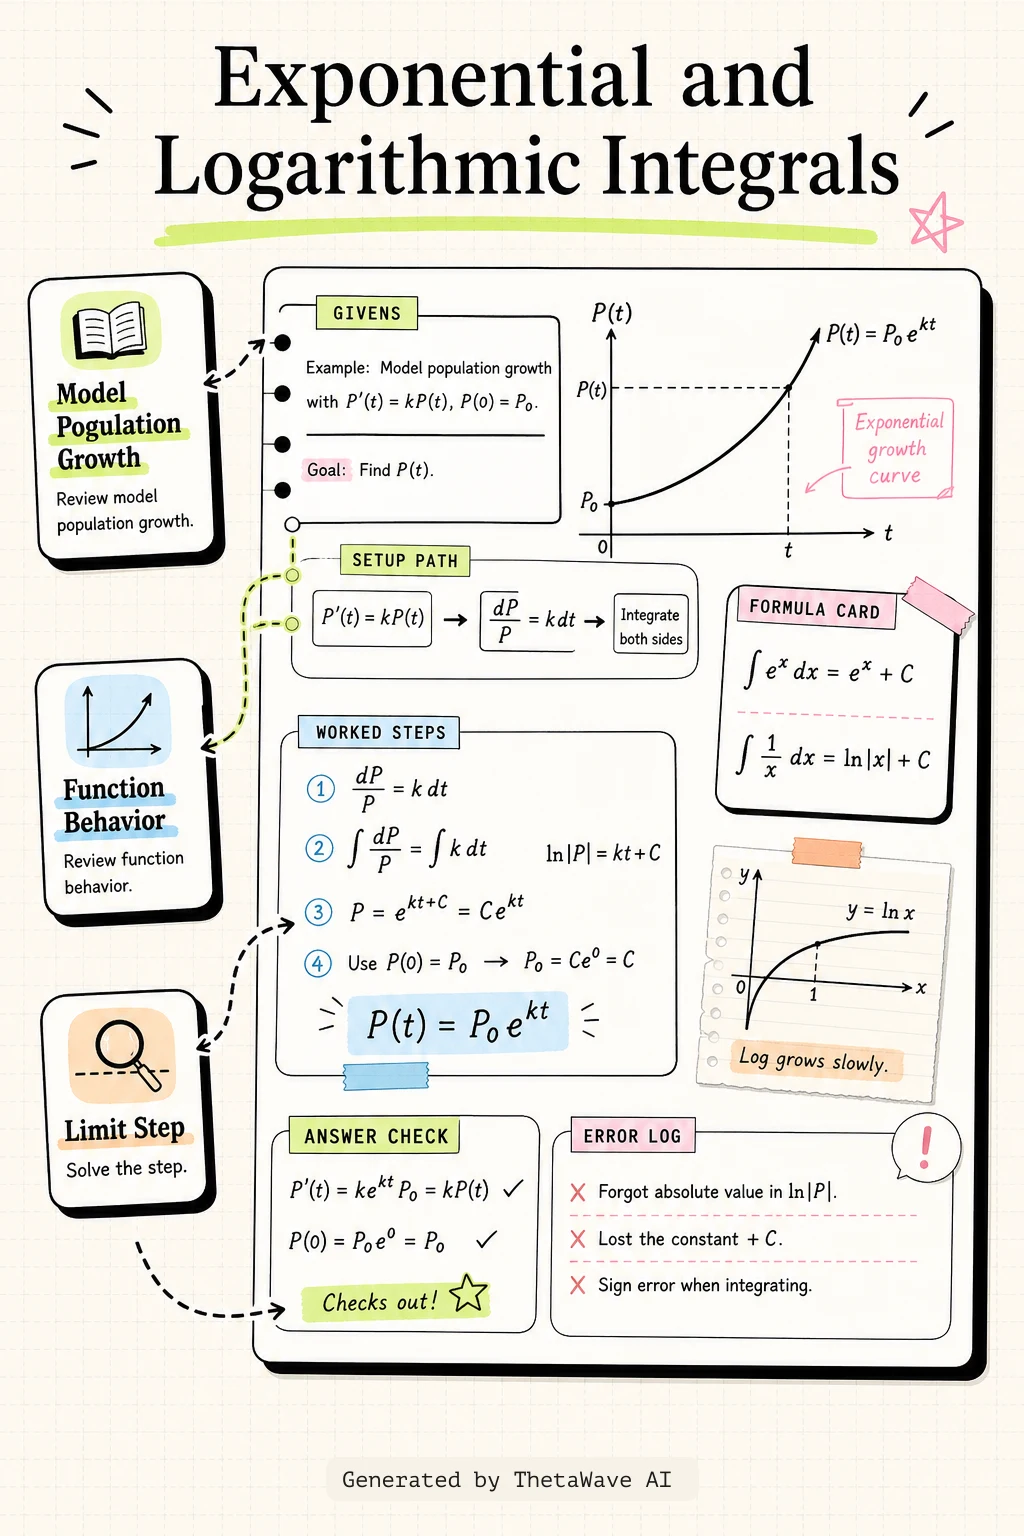 Exponential and
Logarithmic Integrals
Model
Pogulation
Growth
Review model
population growth.
GIVENS
Example: Model population growth
with P'(t) = kP(t), P(0) = P₀.
Goal: Find P(t).
P(t)
P(t) = P₀ e^{kt}
P(t)
P₀
0
t
t
Exponential
growth
curve
SETUP PATH
P'(t) = kP(t) → dP/P = k dt → Integrate
both sides
FORMULA CARD
∫ eˣ dx = eˣ + C
∫ 1/x dx = ln|x| + C
Function
Behavior
Review function
behavior.
WORKED STEPS
1 dP/P = k dt
2 ∫ dP/P = ∫ k dt ln|P| = kt + C
3 P = e^{kt+C} = Ce^{kt}
4 Use P(0) = P₀ → P₀ = Ce⁰ = C
P(t) = P₀ e^{kt}
y
y = ln x
0
1
x
Log grows slowly.
Limit Step
Solve the step.
ANSWER CHECK
P'(t) = ke^{kt} P₀ = kP(t) ✓
P(0) = P₀e⁰ = P₀ ✓
Checks out!
ERROR LOG
!
X Forgot absolute value in ln|P|.
X Lost the constant + C.
X Sign error when integrating.
Generated by ThetaWave AI